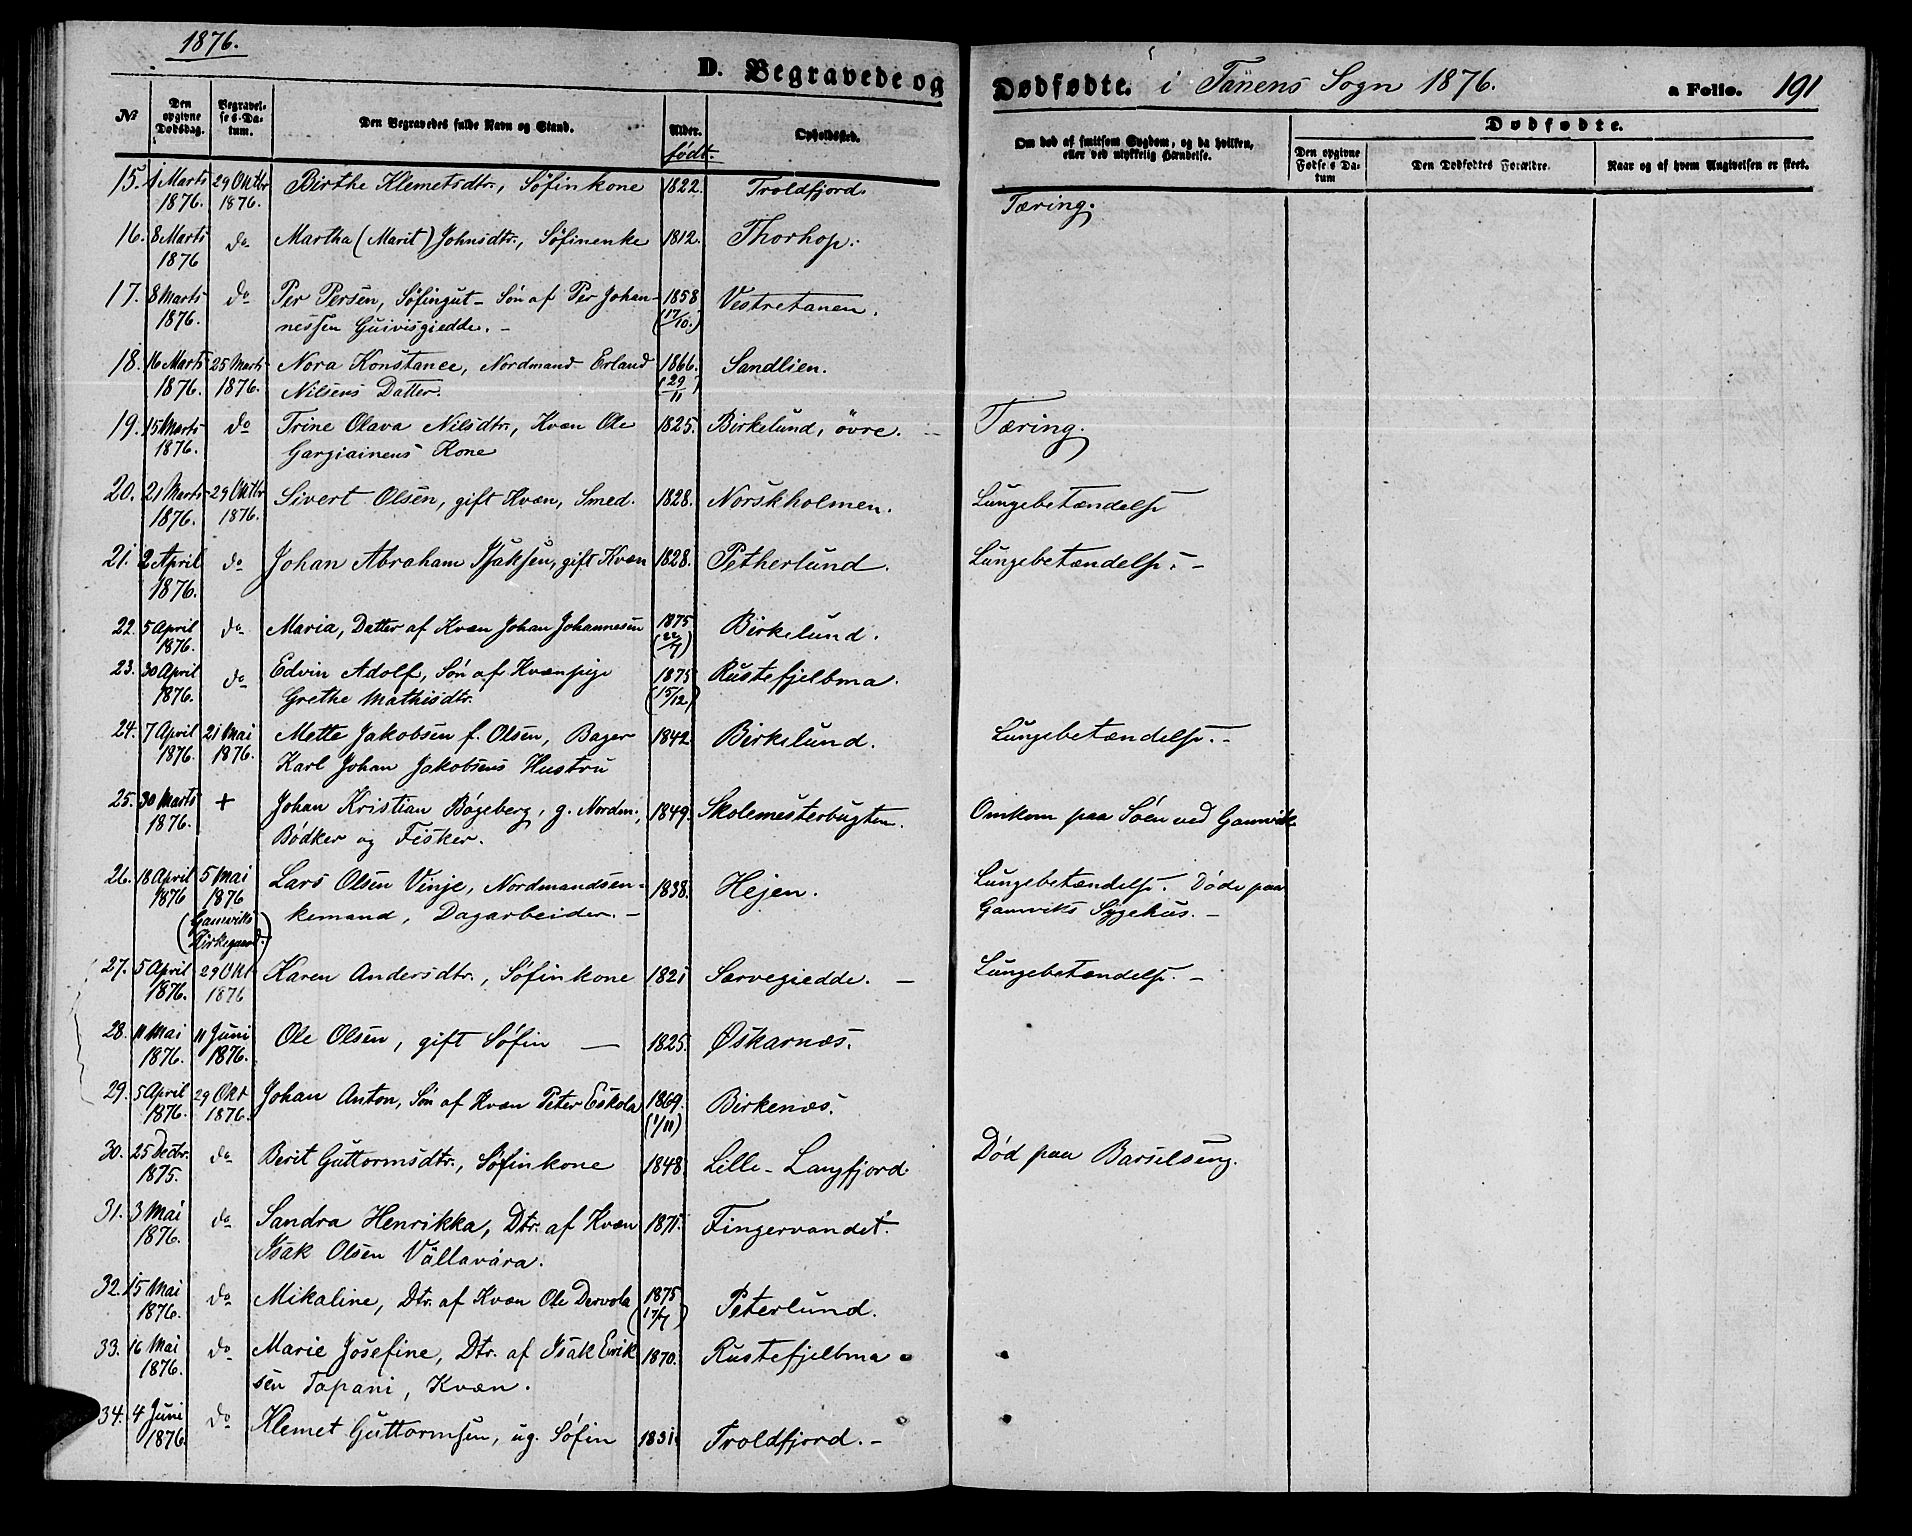 1876.
D. Begravede og Dødfødte. i Tanens Sogn 1876. a Folio. 191
№ Den opgivne Dødsdag. Begravelses-Datum. Den Begravedes fulde Navn og Stand. Alder. født. Opholdssted. Om død af smitsom Sygdom, og da hvilken, eller ved ulykkelig Hændelse. Dødfødte. Den opgivne Fødsels Datum Den Dødfødtes Forældre. Naar og af hvem Angivelsen er skeet.
15. 1 Marts 29 Oktbr Birthe Klemetsdtr., Søfinkone 1822. Troldfjord Tæring.
1876. 1876.
16. 8 Marts do Martha (Marit) Johnsdtr., Søfinenke 1812. Thorhop.
1876
17. 8 Marts do Per Persen, Søfingut - Søn af Per Johan- 1858 Vestretanen.
1876. nessen Guivisgiedde. - (17/10.)
18. 16 Marts 25 Marts Nora Konstance, Nordmand Erland 1866. Sandlien.
1876. 1876. Nilsens Datter. (29/11)
19. 15 Marts do Trine Olava Nilsdtr., Kvæn Ole 1825. Birkelund, øvre. Tæring.
1876. Gargiainens Kone
20. 21 Marts 29 Oktbr Sivert Olsen, gift Kvæn, Smed. 1828. Norskholmen. Lungebetændelse
1876. 1876.
21. 2 April do Johan Abraham Isaksen, gift Kvæn 1828. Petherlund. Lungebetændelse. -
1876.
22. 5 April do Maria, Datter af Kvæn Johan Johannesen 1875 Birkelund.
1876. (22/7)
23. 30 April do Edvin Adolf, Søn af Kvænpige 1875 Rustefjelbma.
1876. Grethe Mathisdtr. (15/12)
24. 7 April 21 Mai Mette Jakobsen f. Olsen, Bager 1842 Birkelund. Lungebetændelse. -
1876. 1876. Karl Johan Jakobsens Hustru
25. 30 Marts + Johan Kristian Bøgeberg, g. Nordm., 1849. Skolemesterbugten. Omkom paa Søen ved Gamvik
1876. Bødker og Fisker.
26. 18 April 5 Mai Lars Olsen Vinje, Nordmandsen- 1838. Hejen. Lungebetændelse. Døde paa
1876 1876 kemand, Dagarbeider. - Gamviks Sygehus. -
(Gamviks Kirkegaard.)
27. 5 April 29 Okt Karen Andersdtr., Søfinkone 1821 Særvegiedde. - Lungebetændelse. -
1876. 1876
28. 11 Mai 11 Juni Ole Olsen, gift Søfin - 1825. Øskarnæs.
1876. 1876.
29. 5 April 29 Okt Johan Anton, Søn af Kvæn Peter Eskola 1869. Birkenæs.
1876. 1876. (1/11)
30. 25 Decbr. do Berit Guttormsdtr., Søfinkone 1848 Lille-Langfjord Død paa Barselseng.
1875.
31. 3 Mai do Sandra Henrikka, Dtr. af Kvæn 1871. Fingervandet.
1876. Isak Olsen Vällavára.
32. 15 Mai do Mikaline, Dtr. af Kvæn Ole Dervola 1875 Peterlund.
1876. (17/7)
33. 16 Mai do Marie Josefine, Dtr. af Isak Eirik 1870. Rustefjelbma
1876. sen Tapani, Kvæn.
34. 4 Juni do Klemet Guttormsen, ug. Søfin 1831. Troldfjord. -
1876.